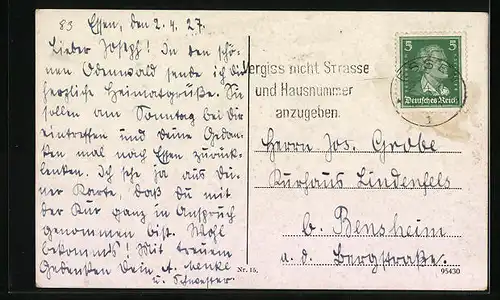 83 Essen, den 2.4.27.
Lieber Joseph! In den schö-
nen Odenwald sende ich dir
herzliche Heimatgrüße. Sie
sollen am Sonntag bei dir
eintreffen und deine Gedan-
ken mal nach Essen zurück-
lenken. Ich sehe ja aus dei-
ner Karte, daß du mit
der Kur ganz in Anspruch
genommen bist. Wohl
bekomm's! Mit treuem
Gedenken Dein
u. Schwester
5 5
Deutsches Reich
ESSEN
1
Vergiss nicht Strasse
und Hausnummer
anzugeben.
Herrn Jos. Gröbe
Kurhaus Lindenfels
b. Bensheim
a. d. Bergstraße.
Nr. 15.
95430